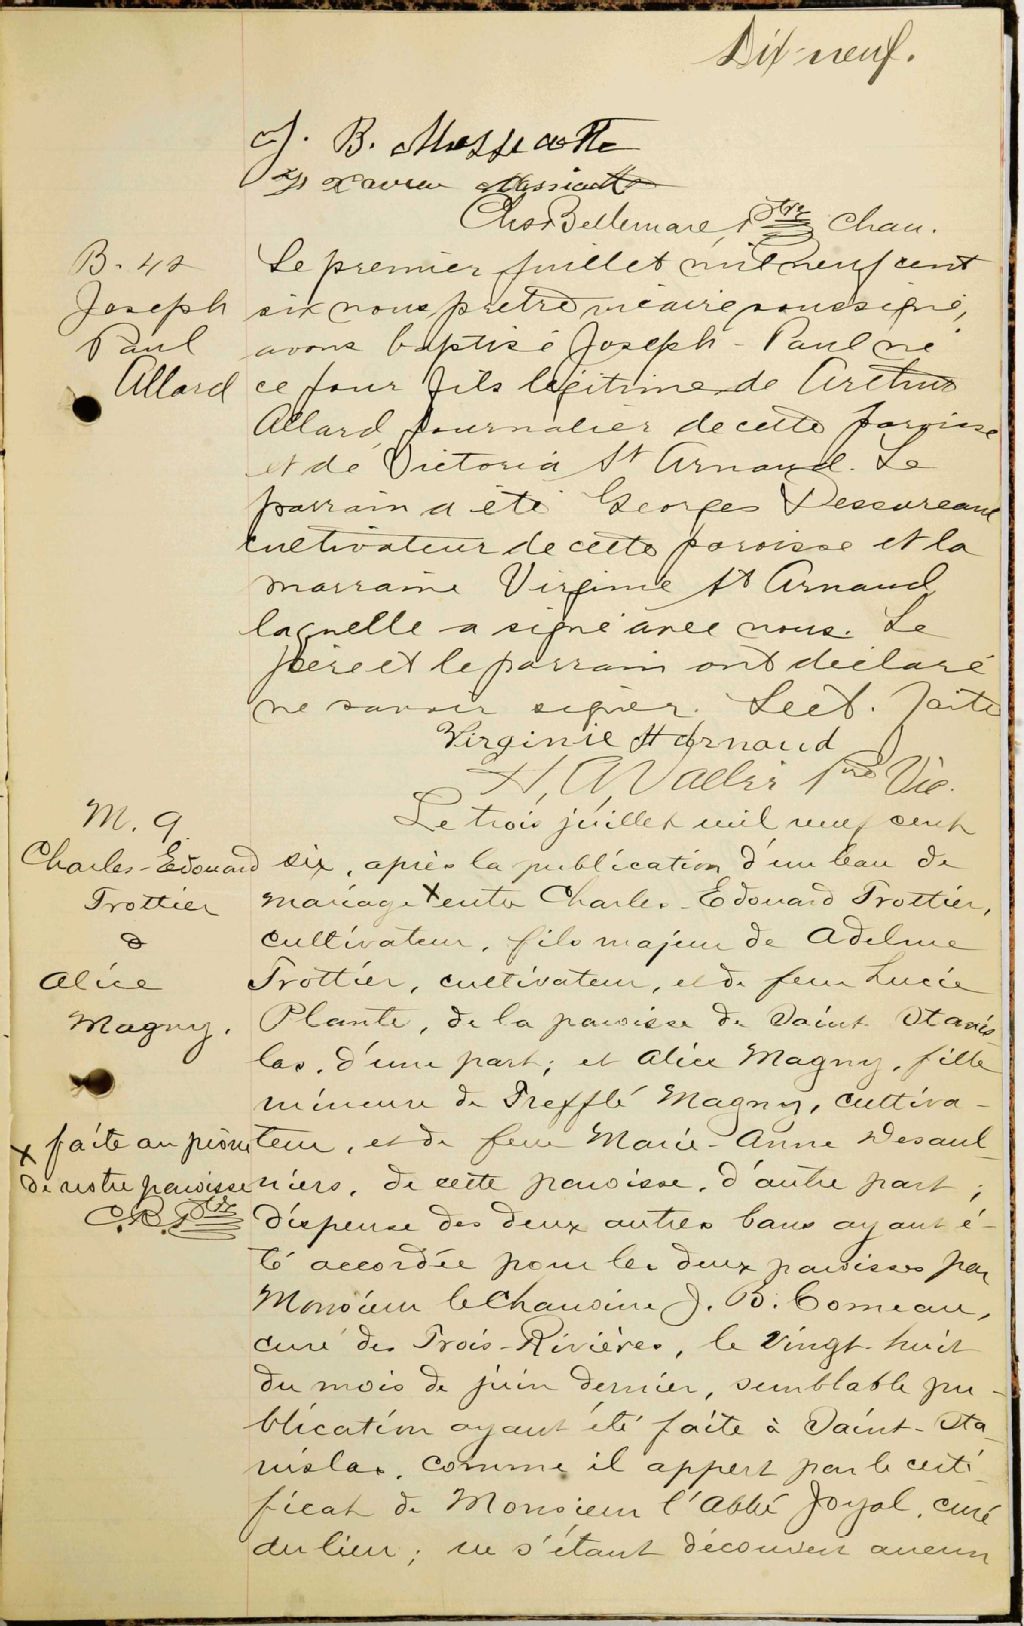 Dix-neuf.
J. B. Massicotte
Xavier Massicotte
Chs Bellemare, Ptre Chan.
B. 42
Joseph
Paul
Allard
Le premier juillet mil neuf cent
six nous prêtre vicaire soussigné,
avons baptisé Joseph-Paul né
ce jour fils légitime de Arthur
Allard, journalier de cette paroisse
et de Victoria St Arnaud. Le
parrain a été Georges Dessureau
cultivateur de cette paroisse et la
marraine Virginie St Arnaud
laquelle a signé avec nous. Le
père et le parrain ont déclaré
ne savoir signer. Lect. faite
Virginie St Arnaud
H. A. Ptre Vic.
M. 9
Charles-Edouard
Trottier
&
Alice
Magny.
Le trois juillet mil neuf cent
six, après la publication d'un ban de
mariage x entre Charles-Edouard Trottier,
cultivateur, fils majeur de Adelme
Trottier, cultivateur, et de feue Lucie
Plante, de la paroisse de Saint Stanis-
las, d'une part; et Alice Magny, fille
mineure de Trefflé Magny, cultiva-
teur, et de feue Marie-Anne Desaul-
niers, de cette paroisse, d'autre part;
dispense des deux autres bans ayant é-
té accordée pour les deux paroisses par
Monsieur le Chanoine J. B. Comeau,
curé des Trois-Rivières, le vingt-huit
du mois de juin dernier, semblable pu-
blication ayant été faite à Saint-Sta-
nislas, comme il appert par le certi-
ficat de Monsieur l'Abbé Joyal, curé
du lieu; ne s'étant découvert aucun
x faite au prône
de notre paroisse
C. B. Ptre